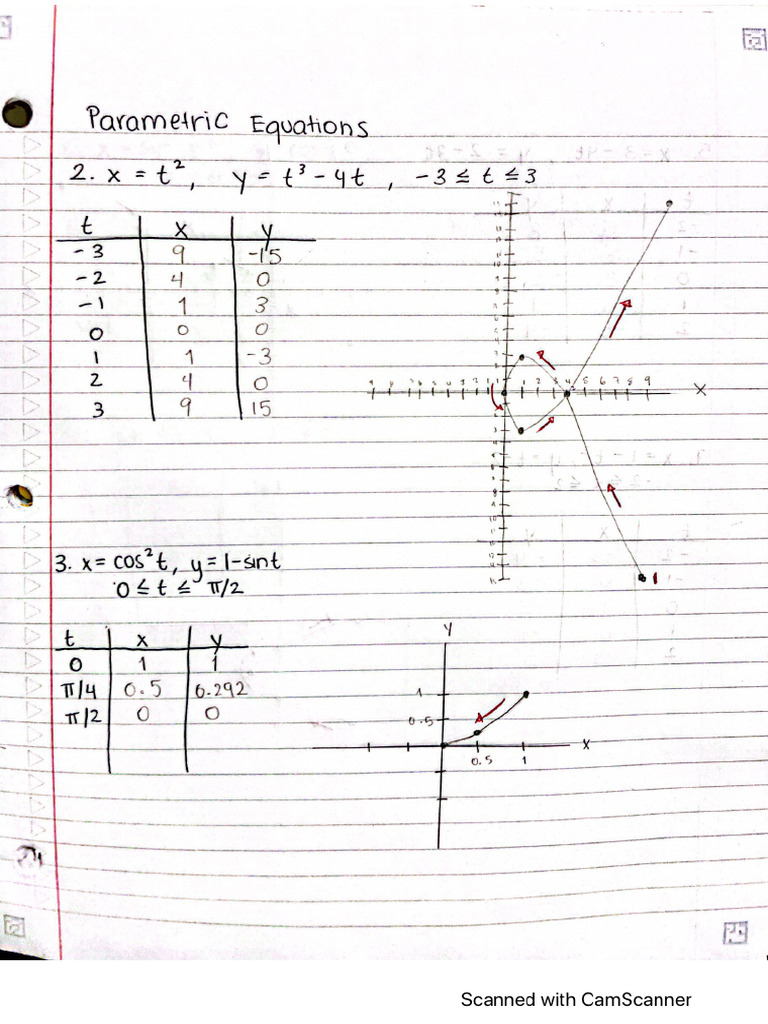 Parametric Equations
2. x = t², y = t³ - 4t, -3 ≤ t ≤ 3
t x y
-3 9 -15
-2 4 0
-1 1 3
0 0 0
1 1 -3
2 4 0
3 9 15
1 2 3 4 5 6 7 8 9 X
3. x = cos²t, y = 1-sint
0 ≤ t ≤ π/2
t x y
0 1 1
π/4 0.5 0.292
π/2 0 0
y
1
0.5
x
0.5 1
Scanned with CamScanner